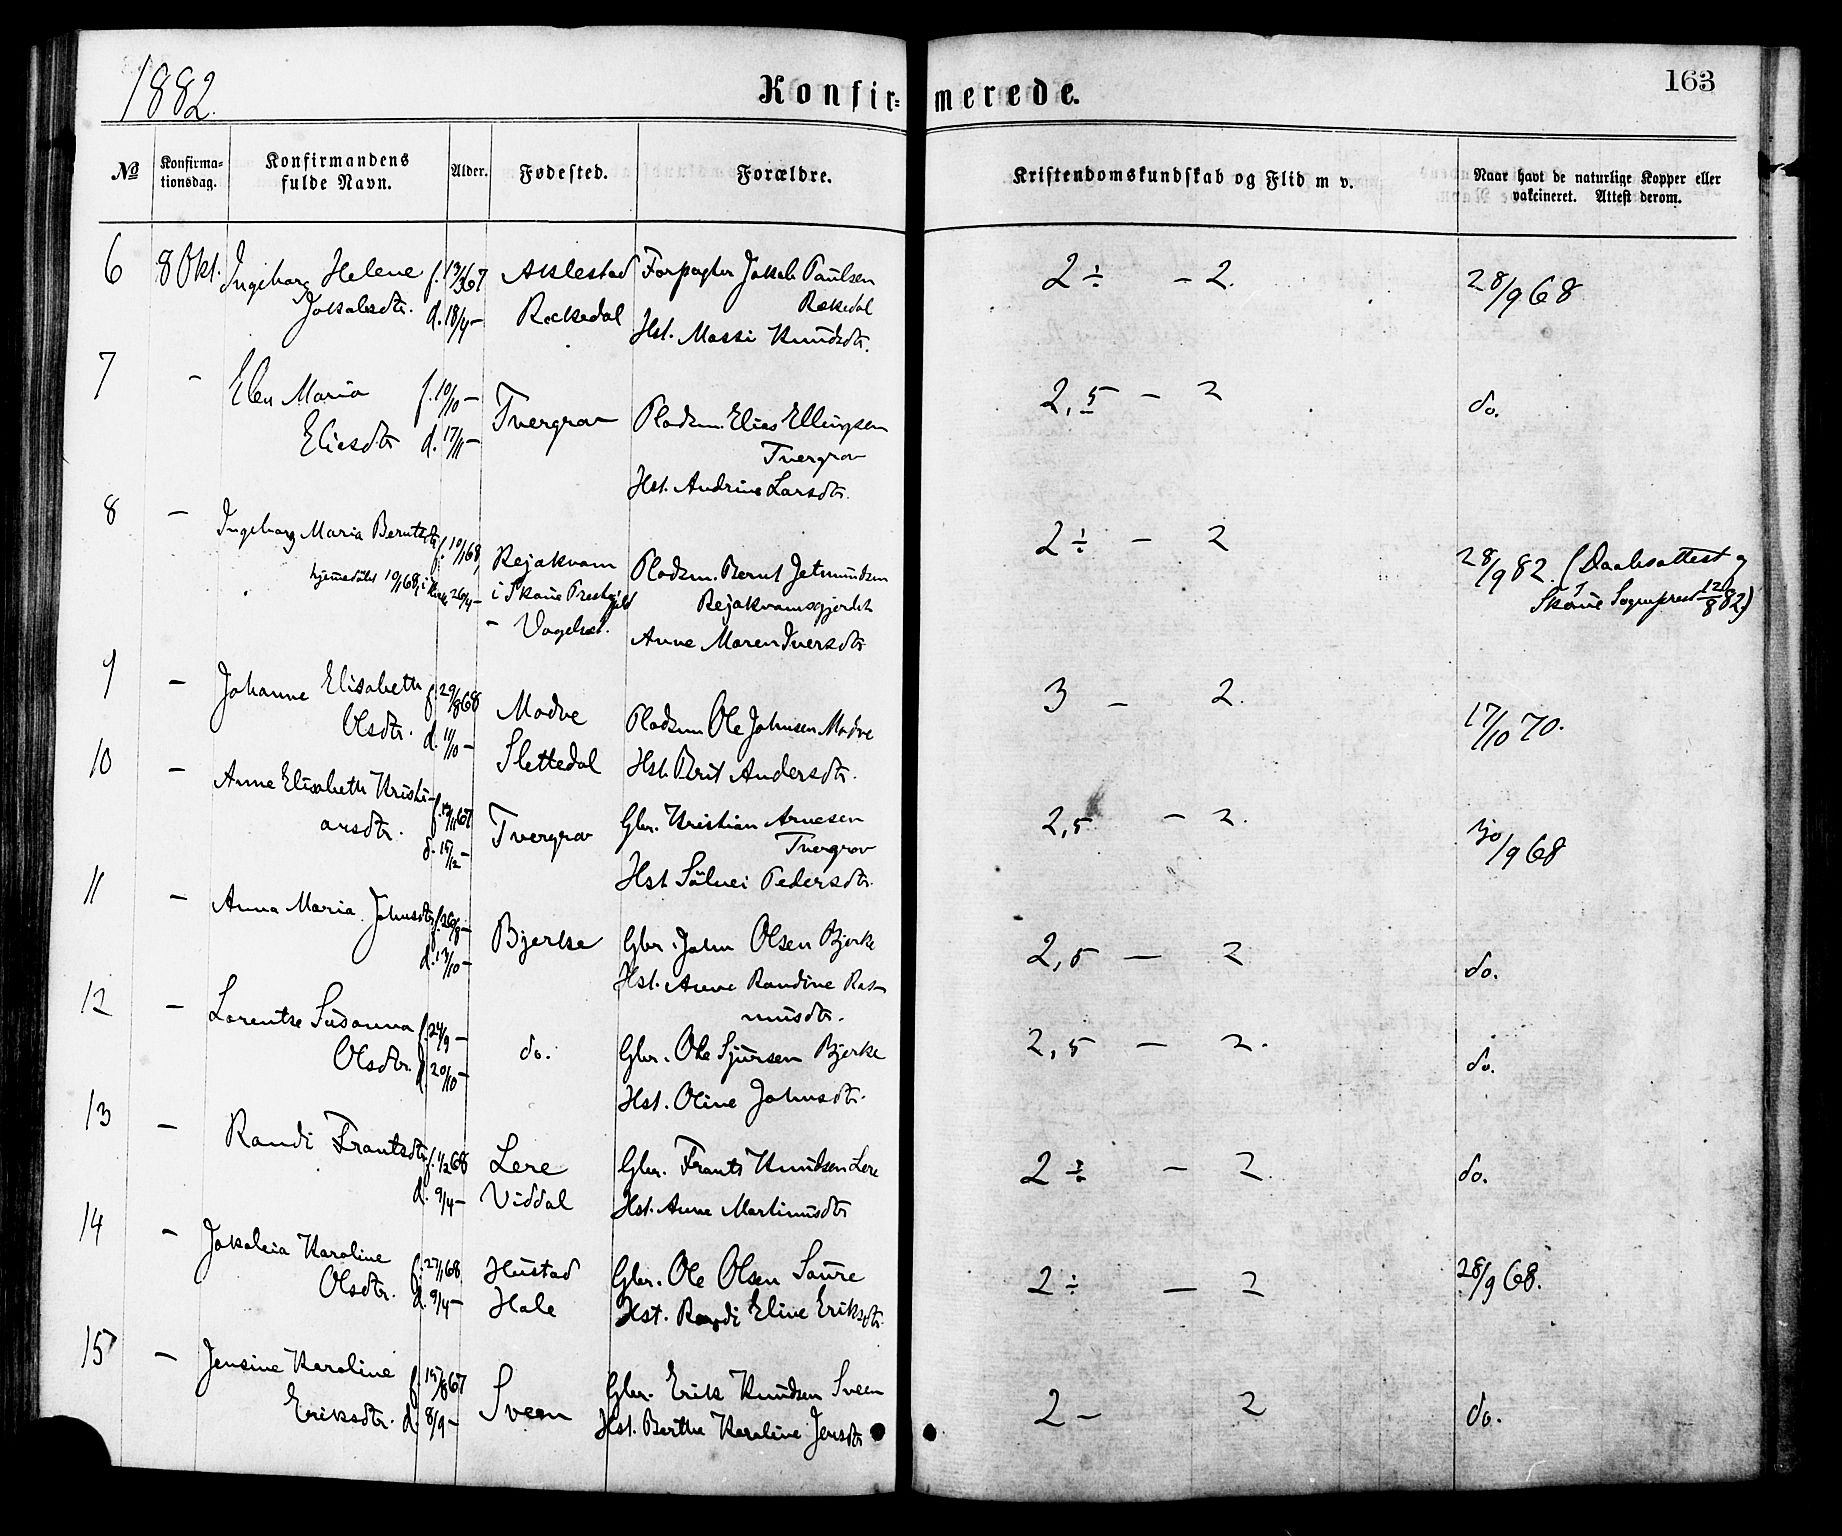 1882.
Konfirmerede.
163
№
Konfirma-
tionsdag.
Konfirmandens
fulde Navn.
Alder.
Fødested.
Forældre.
Kristendomskundskab og Flid m v.
Naar havt de naturlige Kopper eller
vakcineret. Attest derom.
6 8 Okt. Ingeborg Helene f. 13/3 67 Aklestad Forpagter Jakob Paulsen 2 ÷ – 2. 28/9 68
Jakobsdtr. d. 18/4 – Rekkedal Rekkedal
Hst. Massi Knudsdtr.
7 – Elen Maria f. 10/10 – Tvergrov Pladsm. Elias Ellingsen 2,5 – 2 do.
Eliasdtr d. 17/11 – Tvergrov
Hst. Andrine Larsdtr.
8 – Ingeborg Maria Berntsdtr f. 10/1 68, Rejakvam Pladsm. Bernt Jetmundsen 2 ÷ – 2 28/9 82. (Daabsattest
hjemmedøbt 10/1 68, i Kirke 26/4 – i Skaue Prestegjeld Rejakvamsgjerdet Skaue Sogneprest 12/8 82.)
– Anne Maren Iversdtr
9 – Johanne Elisabeth f. 29/8 68 Madve Pladsm Ole Johnsen Madve 3 – 2. 17/10 70.
Olsdtr. d. 11/10 – Slettedal Hst. Brit Andersdtr.
10 – Anne Elisabeth Kristi- Tvergrov Gbr. Kristian Arnesen 2,5 – 2. 30/9 68
ansdtr. d. 15/12 – Tvergrov
Hst Sølnei Pedersdtr.
11 – Anna Maria Johnsdtr Bjerke Gbr. John Olsen Bjerke 2,5 – 2 do.
d. 13/10 – Hst. Anne Randine Ras-
musdtr.
12 – Lorentse Susanna f. 24/9 – do. Gbr. Ole Sjursen Bjerke 2,5 – 2. do.
Olsdtr. d. 20/10 – Hst. Oline Johnsdtr.
13 – Randi Frantsdtr f. 1/2 68 Lere Gbr. Frants Knudsen Lere 2 ÷ – 2. do.
d. 9/4 – Viddal Hst. Anne Martinusdtr
14 – Jakobia Karoline f. 27/1 68 Hustad Gbr. Ole Olsen Saure 2 ÷ – 2 28/9 68.
Olsdtr. d. 9/4 – Hole Hst. Randi Eline Eriksdtr.
15 – Jensine Karoline f. 15/8 67 Sveen Gbr. Erik Knudsen Sveen 2 – 2 do.
Eriksdtr. d. 8/9 – Hst. Berthe Karoline Jensdtr